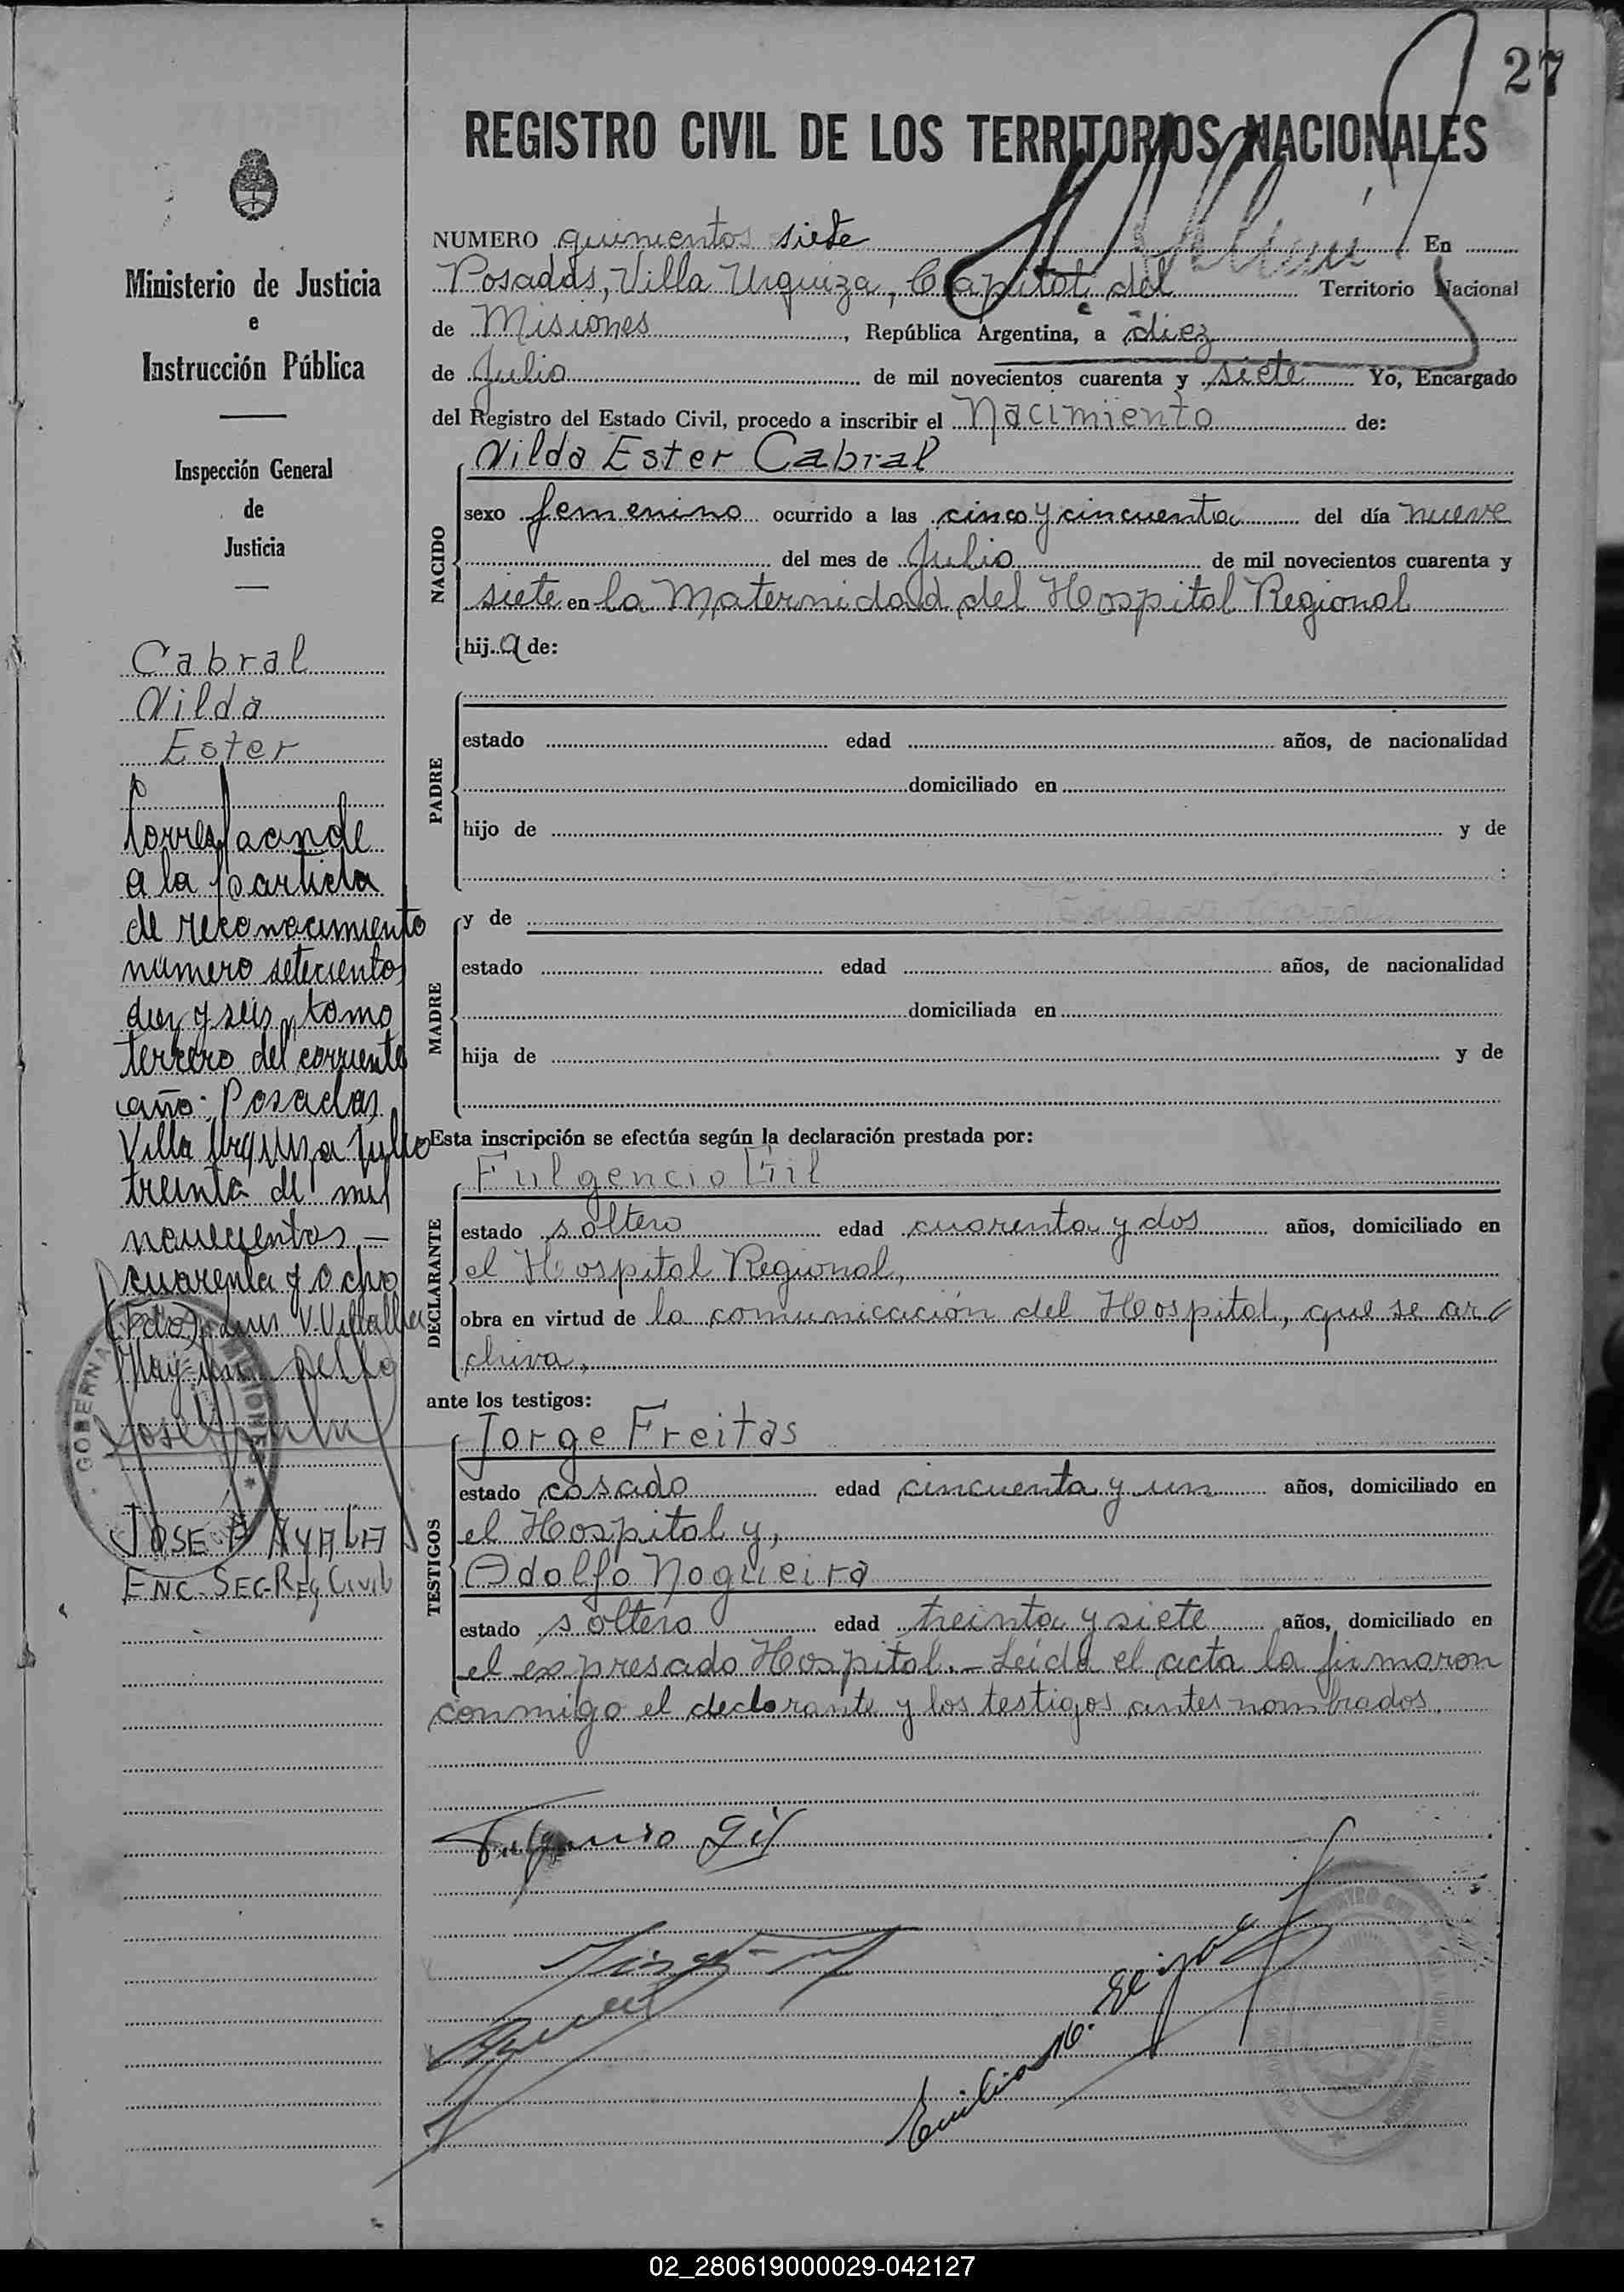 27
REGISTRO CIVIL DE LOS TERRITORIOS NACIONALES
Ministerio de Justicia
e
Instrucción Pública
Inspección General
de
Justicia
Cabral
Nilda
Ester
Corresponde
a la partida
de reconocimiento
número setecientos
diez y seis, tomo
tercero del corriente
año. Posadas
Villa Urquiza Julio
treinta de mil
novecientos
cuarenta y ocho
(Fdo) Luis V. Villalba
Hay un sello
JOSE P AYALA
ENC. SEC. REG CIVIL
NUMERO quinientos siete En
Posadas, Villa Urquiza, Capital del Territorio Nacional
de Misiones, República Argentina, a diez
de Julio de mil novecientos cuarenta y siete Yo, Encargado
del Registro del Estado Civil, procedo a inscribir el Nacimiento de:
NACIDO
Nilda Ester Cabral
sexo femenino ocurrido a las cinco y cincuenta del día nueve
del mes de Julio de mil novecientos cuarenta y
siete en la Maternidad del Hospital Regional
hija de:
PADRE
estado edad años, de nacionalidad
domiciliado en
hijo de y de
:
MADRE
y de
estado edad años, de nacionalidad
domiciliada en
hija de y de
Esta inscripción se efectúa según la declaración prestada por:
DECLARANTE
Fulgencio Gil
estado soltero edad cuarenta y dos años, domiciliado en
el Hospital Regional,
obra en virtud de la comunicación del Hospital, que se ar
chiva,
ante los testigos:
TESTIGOS
Jorge Freitas
estado casado edad cincuenta y un años, domiciliado en
el Hospital y,
Adolfo Nogueira
estado soltero edad treinta y siete años, domiciliado en
el expresado Hospital.- Leída el acta la firmaron
conmigo el declarante y los testigos antes nombrados.
Fulgencio Gil
02_280619000029-042127